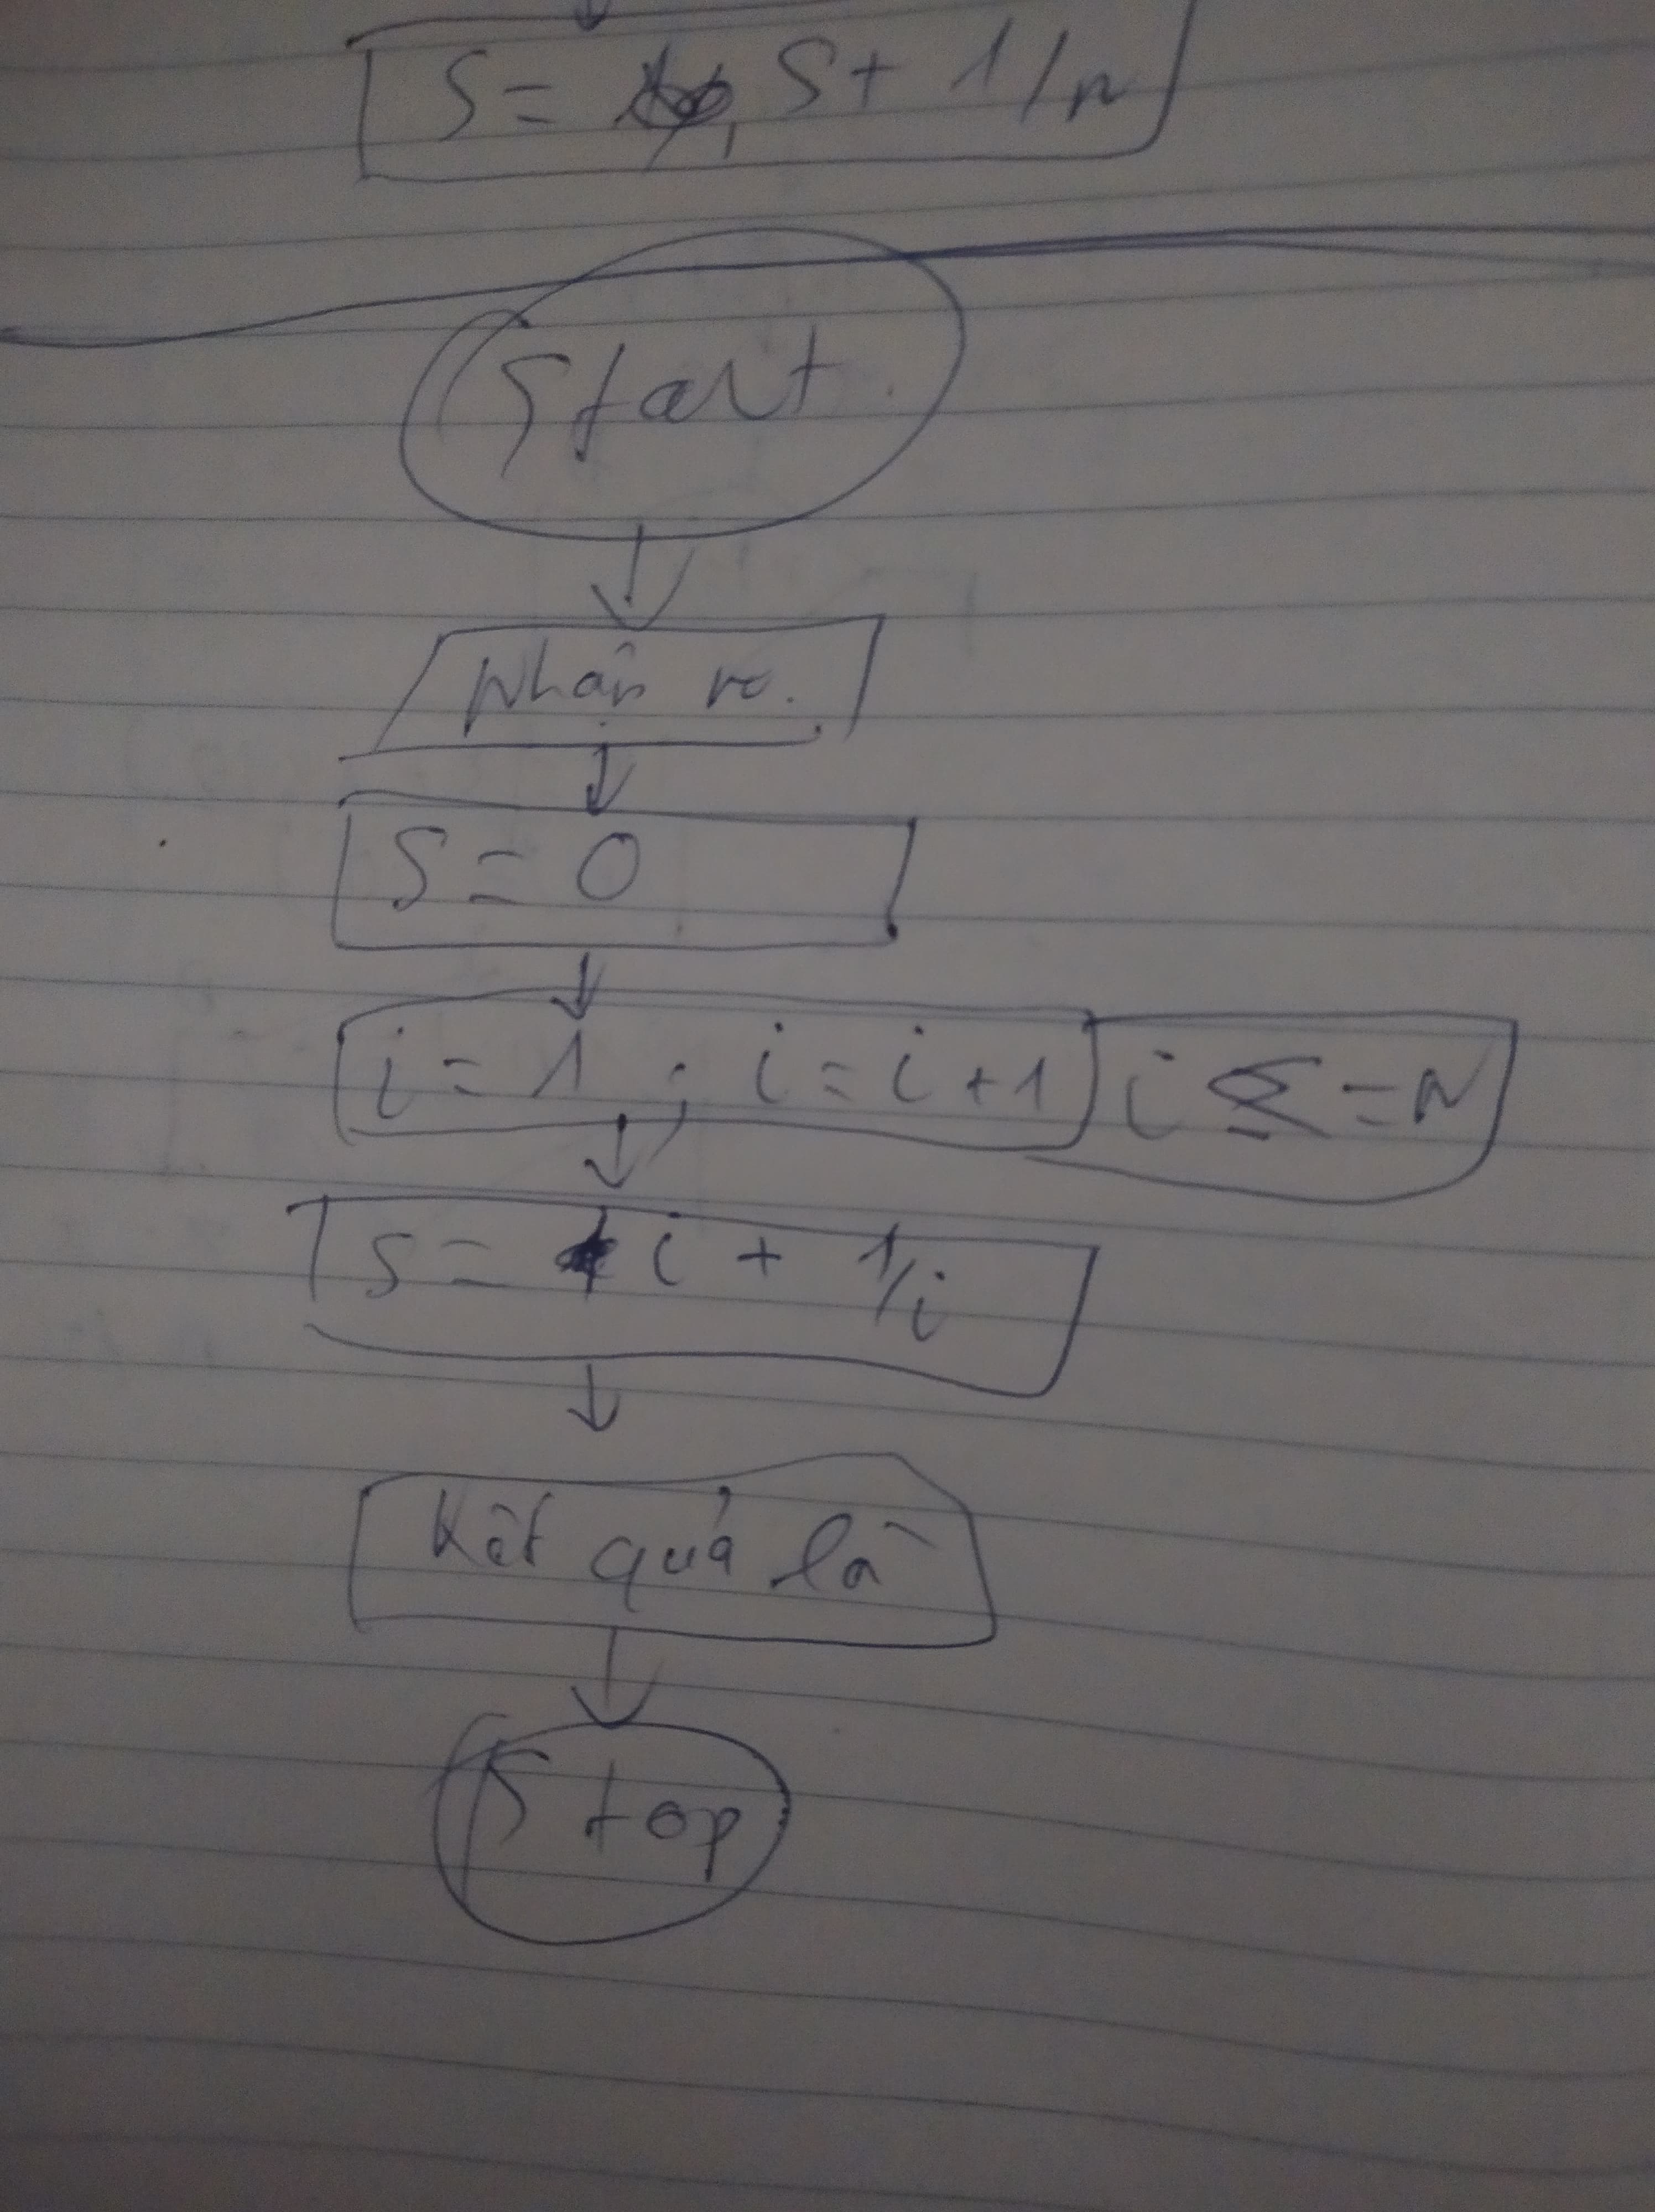 S = S + 1/n
Start
Nhận n.
S = 0
i = 1 ; i = i + 1 i ≤ = N
S = i + 1/i
Kết quả là
Stop